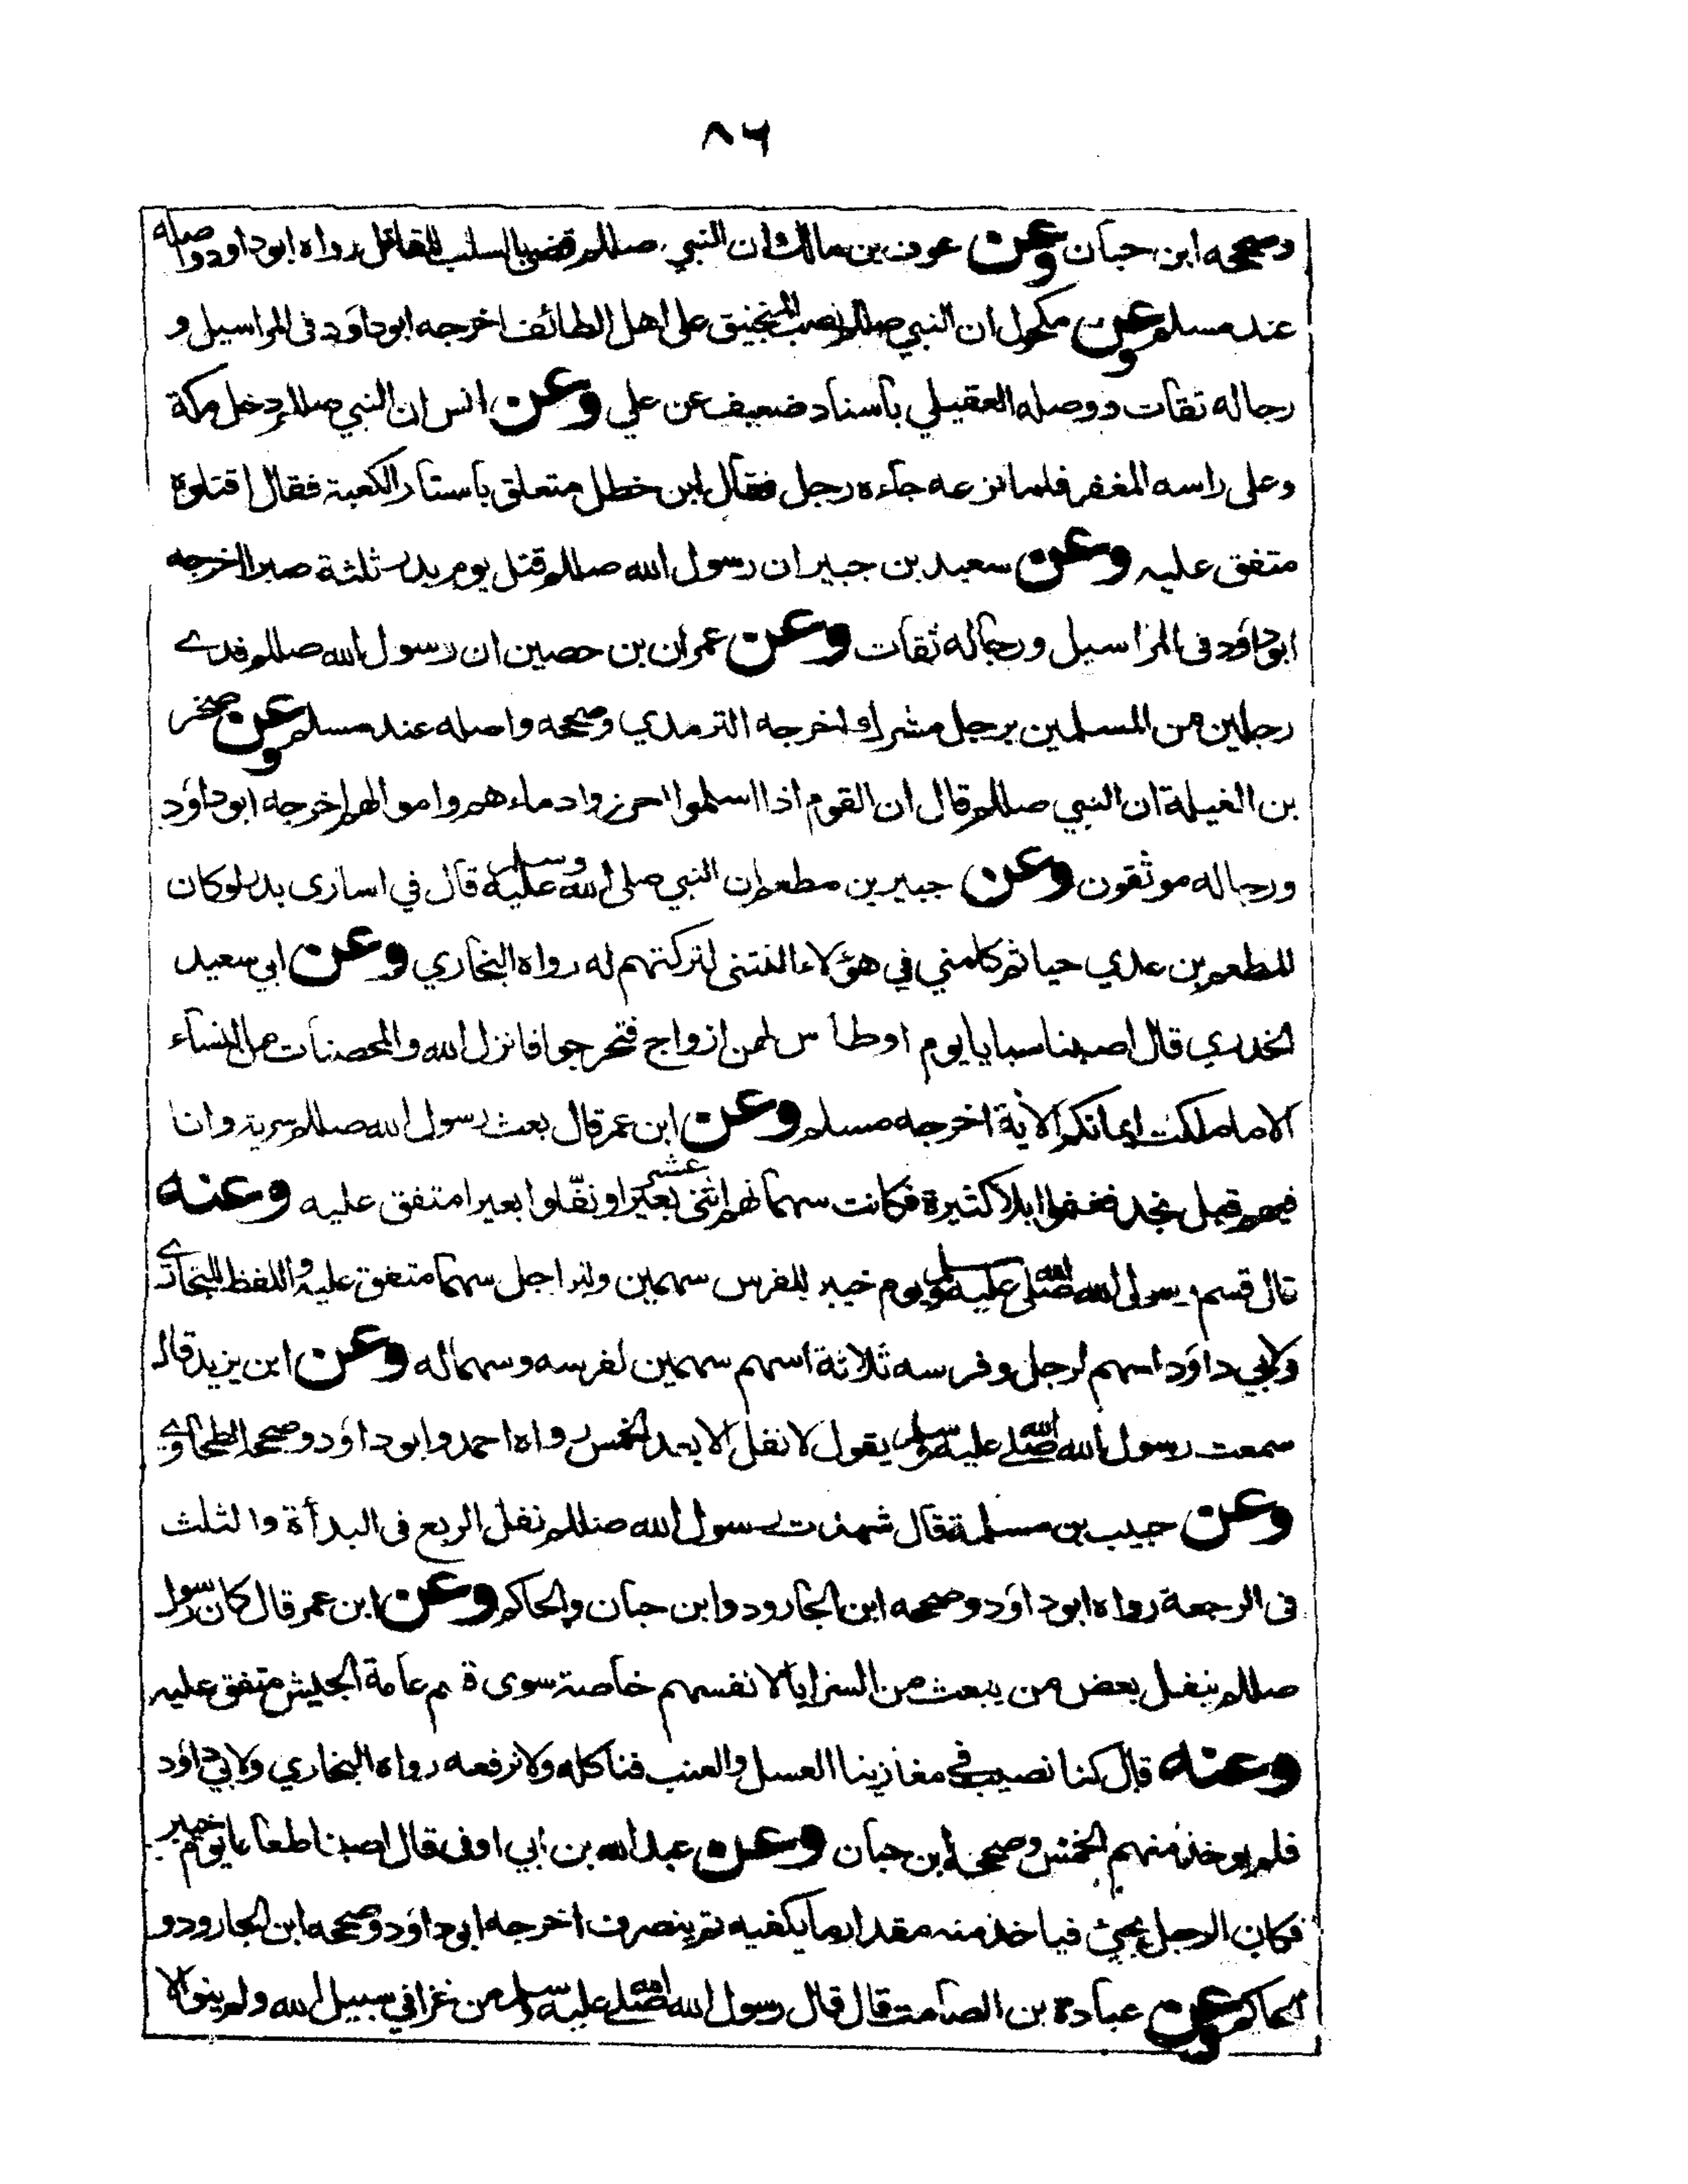 ٨٦
وصححه ابن حبان وعن عوف بن مالك ان النبي صللم قضى بالسلب للقاتل رواه ابوداود واصله
عند مسلم وعن مكحول ان النبي صللم نصب المنجنيق على اهل الطائف اخرجه ابوداؤد فى المراسيل و
رجاله ثقات ووصله العقيلي باسناد ضعيف عن علي وعن انس ان النبي صللم دخل مكة
وعلى راسه المغفر فلما نزعه جاءه رجل فقال ابن خطل متعلق باستار الكعبة فقال اقتلوه
متفق عليه وعن سعيد بن جبير ان رسول الله صللم قتل يوم بدر ثلثة صبرا اخرجه
ابوداؤد فى المراسيل ورجاله ثقات وعن عمران بن حصين ان رسول الله صللم فدى
رجلين من المسلمين برجل مشرك اخرجه الترمذي وصححه واصله عند مسلم وعن صخر
بن الغيلة ان النبي صللم قال ان القوم اذا اسلموا احرزوا دماءهم واموالهم اخرجه ابوداؤد
ورجاله موثقون وعن جبير بن مطعم ان النبي صلى الله عليه وسلم قال في اسارى بدر لوكان
المطعم بن عدي حيا ثم كلمني في هؤلاء النتنى لتركتهم له رواه البخاري وعن ابي سعيد
الخدري قال اصبنا سبايا يوم اوطاس لهن ازواج فتحرجوا فانزل الله والمحصنات من النساء
الا ما ملكت ايمانكم الاية اخرجه مسلم وعن ابن عمر قال بعث رسول الله صللم سرية وانا
فيهم قبل نجد فغنموا ابلا كثيرة فكانت سهمانهم اثنى عشر بعيرا ونفلوا بعيرا بعيرا متفق عليه وعنه
قال قسم رسول الله صلى الله عليه وسلم يوم خيبر للفرس سهمين وللراجل سهما متفق عليه واللفظ للبخاري
ولابي داؤد اسهم لرجل وفرسه ثلاثة اسهم سهمين لفرسه وسهما له وعن ابن يزيد قال
سمعت رسول الله صلى الله عليه وسلم يقول لا نفل الا بعد الخمس رواه احمد وابوداؤد وصححه الطحاوي
وعن حبيب بن مسلمة قال شهدت رسول الله صللم نفل الربع فى البدأة والثلث
فى الرجعة رواه ابوداؤد وصححه ابن الجارود وابن حبان والحاكم وعن ابن عمر قال كان رسول
صللم ينفل بعض من يبعث من السرايا لانفسهم خاصة سوى قسم عامة الجيش متفق عليه
وعنه قال كنا نصيب في مغازينا العسل والعنب فناكله ولا نرفعه رواه البخاري ولابي داؤد
فلم يوخذ منهم الخمس وصححه ابن حبان وعن عبد الله بن ابي اوفى قال اصبنا طعاما يوم خيبر
فكان الرجل يجئ فياخذ منه مقدار ما يكفيه ثم ينصرف اخرجه ابوداؤد وصححه ابن الجارود و
الحاكم وعن عبادة بن الصامت قال قال رسول الله صلى الله عليه وسلم من غزا في سبيل الله ولم ينو الا